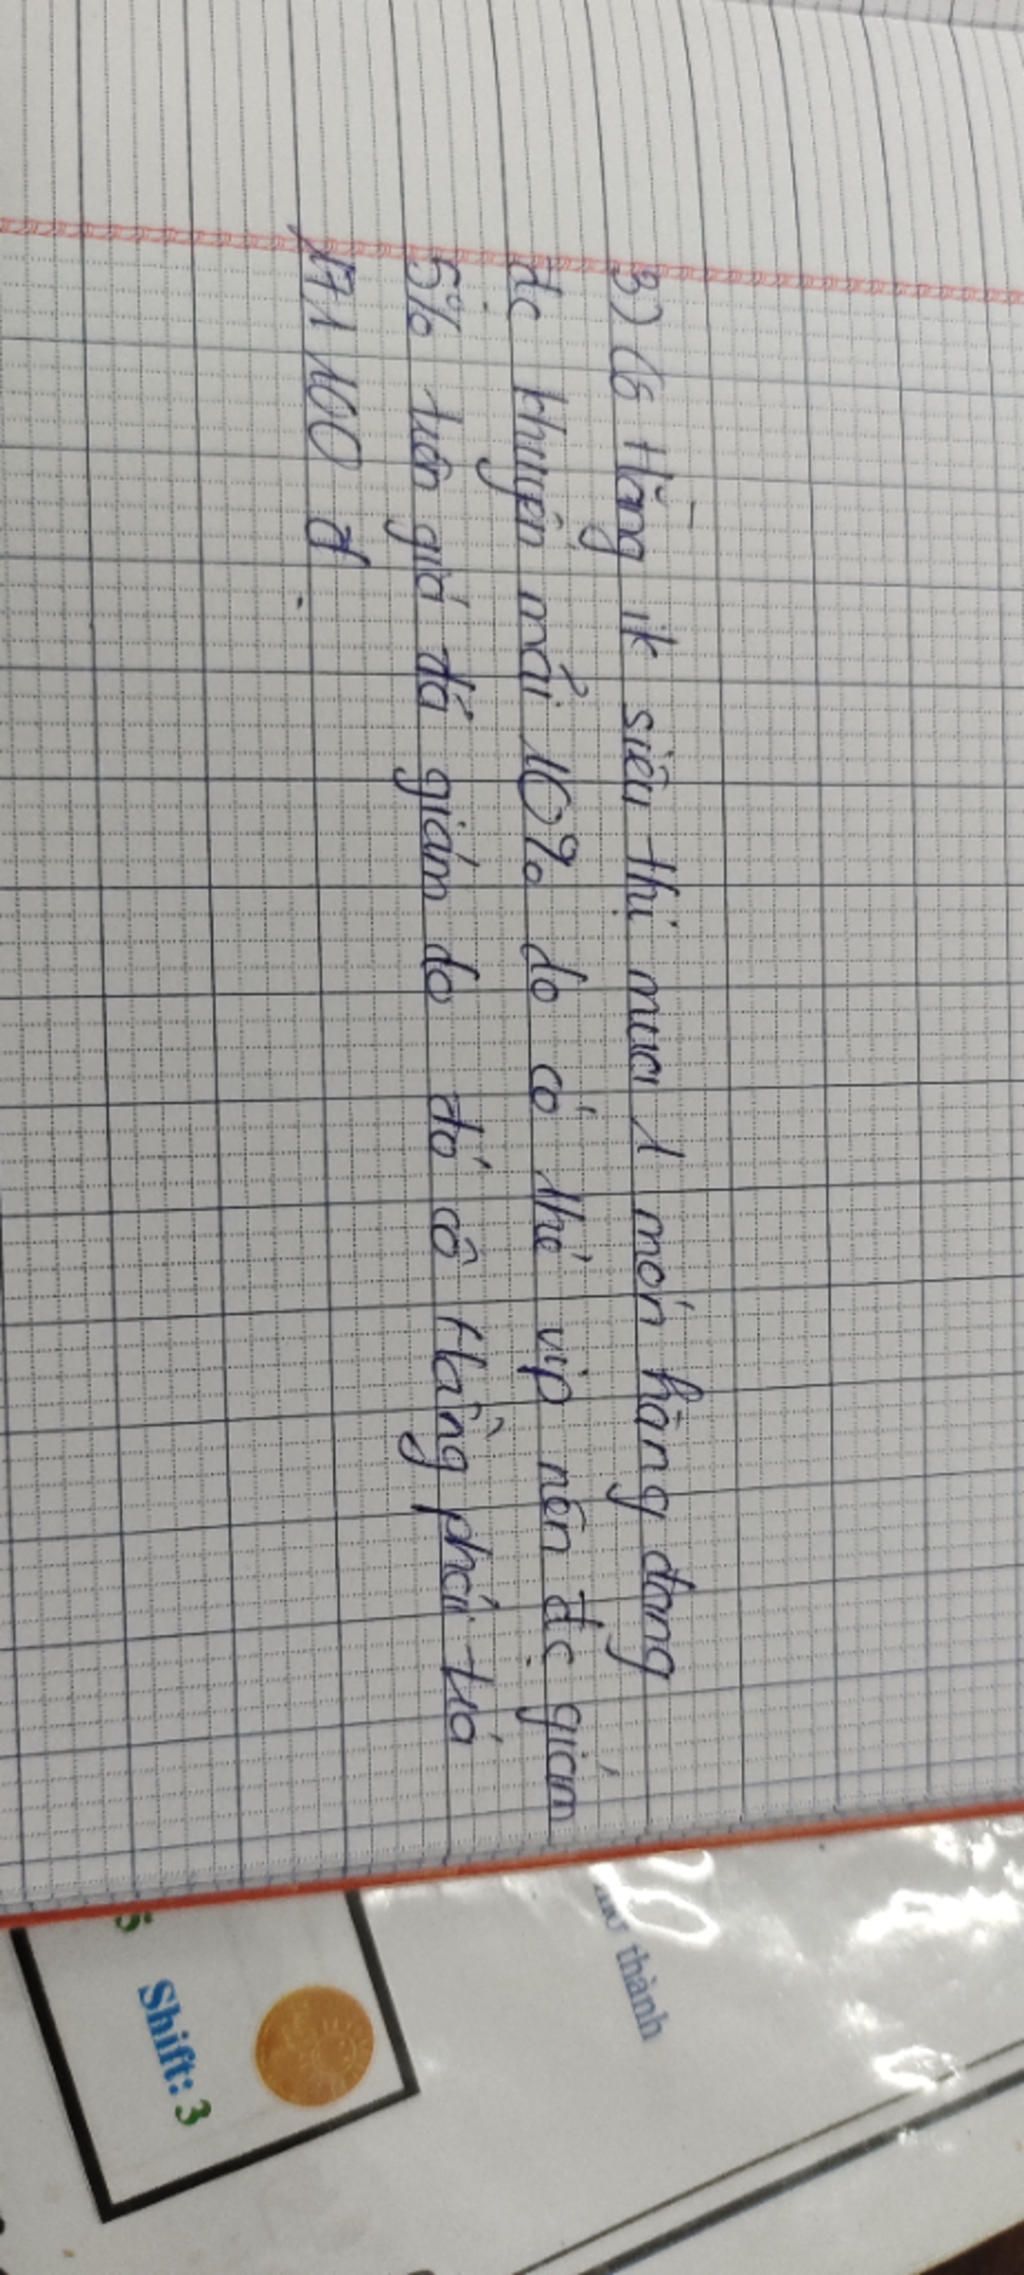 3) Cô Hằng ik siêu thị mua 1 món hàng đang
đc khuyến mãi 10% do có thẻ vip nên đc giảm
5% trên giá đã giảm do đó cô Hằng phải trả
171 100 đ
thành
Shift: 3
5